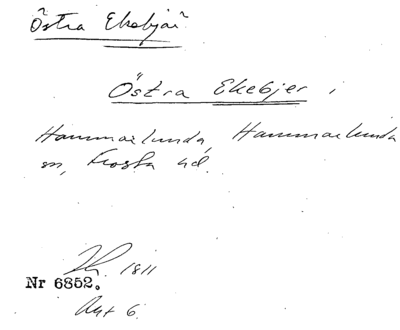 Östra Ekebjär
Östra Ekebjer i
Hammarlunda, Hammarlunda
sn, Frosta hd.
1811
Nr 6852.
Akt 6